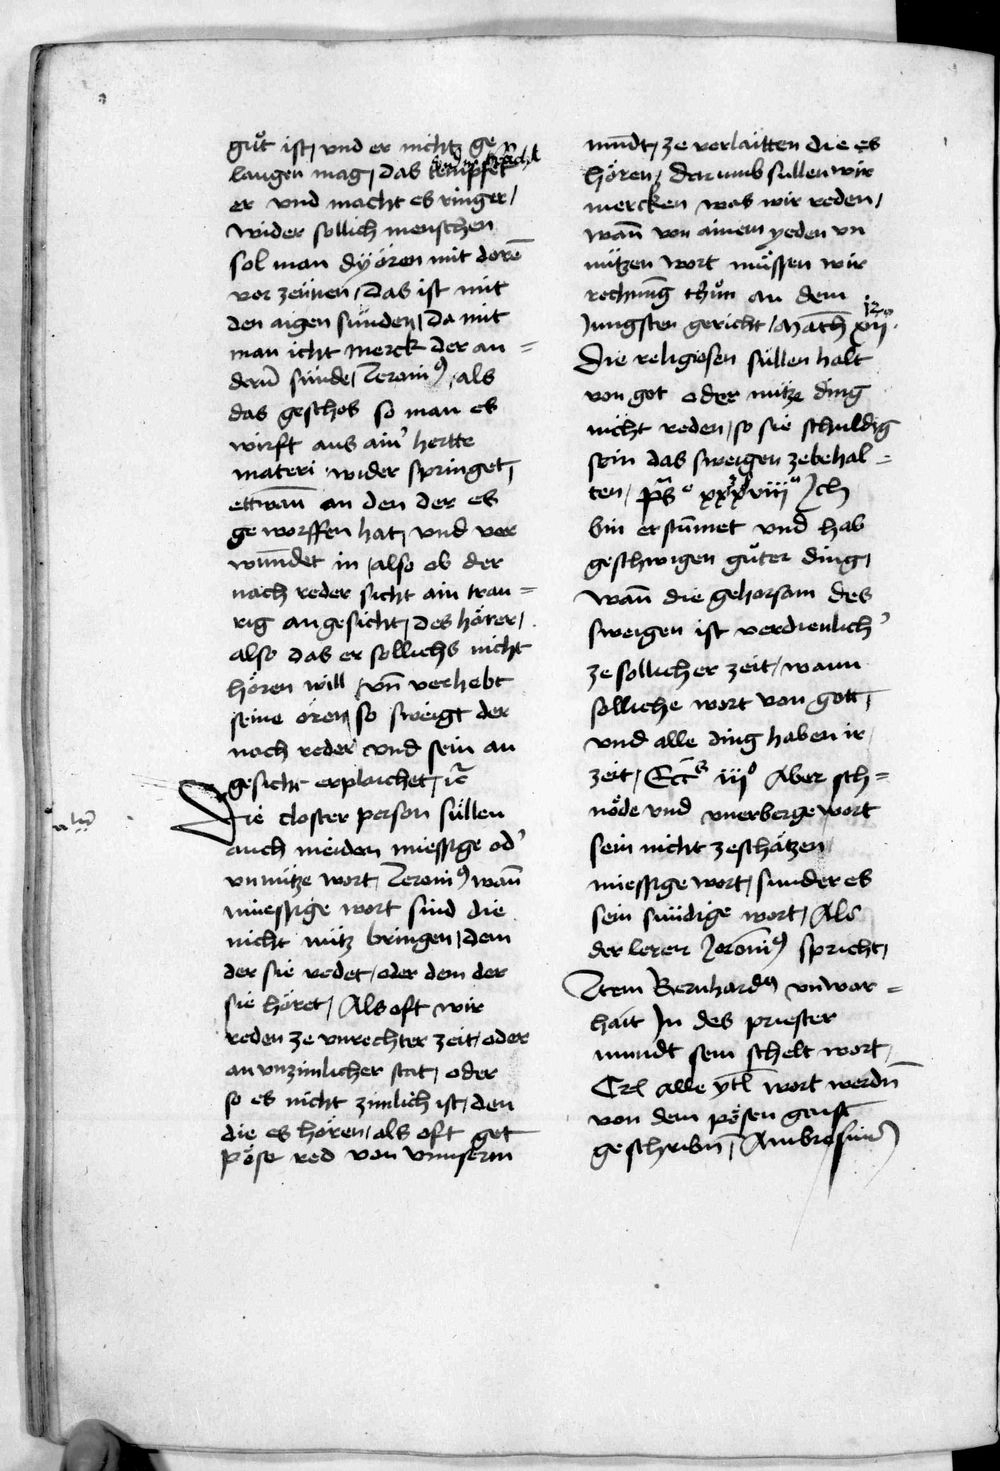 guͦt ist / vnd er nicht ge
langen mag / das kempfet
er vnd macht es ringer /
wider sollich menschen
sol man dÿ oͤren mit dorē
ver zeünen / Das ist mit
den aigen sünden / Da mit
man icht merck der an =
derū sünde / Jeronim⁹ / als
das geschos so man es
wirft aus ain' hertte
materi wider springet /
ettwan̄ an den der es
ge worffen hat / vnd ver
wūndet in / also ob der
nach reder sicht ain trau =
rig angesicht / des hoͤrer /
also das er sollichs nicht
hoͤren will / vn̄ verhebt
seine oͤren / so sweigt der
nach reder vnd sein an
gesicht erplaichet / ꝛc̄
Die closter person süllen
auch meiden miessige od'
vnnütze wort / Jeroni⁹ wan̄
müessige wort sind die
nicht nütz bringen / dem
der sie redet / oder dem der
sie hoͤret / Als oft wir
reden ze vnrechter zeit / oder
an vnzimlicher stat / oder
so es nicht zimlich ist / den
die es hoͤren / als oft get
poͤse red von vnnserm
mūndt / ze verlaitten die es
hoͤren / Dar umb sullen wir
mercken was wir reden /
wan̄ von ainem yeden vn
nützen wort muͤssen wir
rechnūg thuͦn an dem
Jungsten gericht / Math̄ xij.
Die religiosen süllen halt
von got oder nütze ding
nicht reden / so sie schuldig
sein das sweigen zebehal =
ten / p̄s° xxxviii° Ich
bin erstūmet vnd hab
geschwigen guͦter ding /
wan̄ die gehorsam des
sweigen ist verdienlich'
ze sollicher zeit / wann
solliche wort von gott /
vnd alle ding haben ir
zeit / Ecc̄s iij° Aber sch =
noͤde vnd vnerberge wort
sein nicht zeschätzen
miessige wort / sunder es
sein sündige wort / Als
der lerer Jeronī⁹ spricht /
Item Bernhard⁹ vnwar =
hait In des priester
mundt sein schelt wort /
Crꝭ alle ytl̄ wort werdn̄
von dem poͤsen gaist
geschribn̄ / Ambrosius